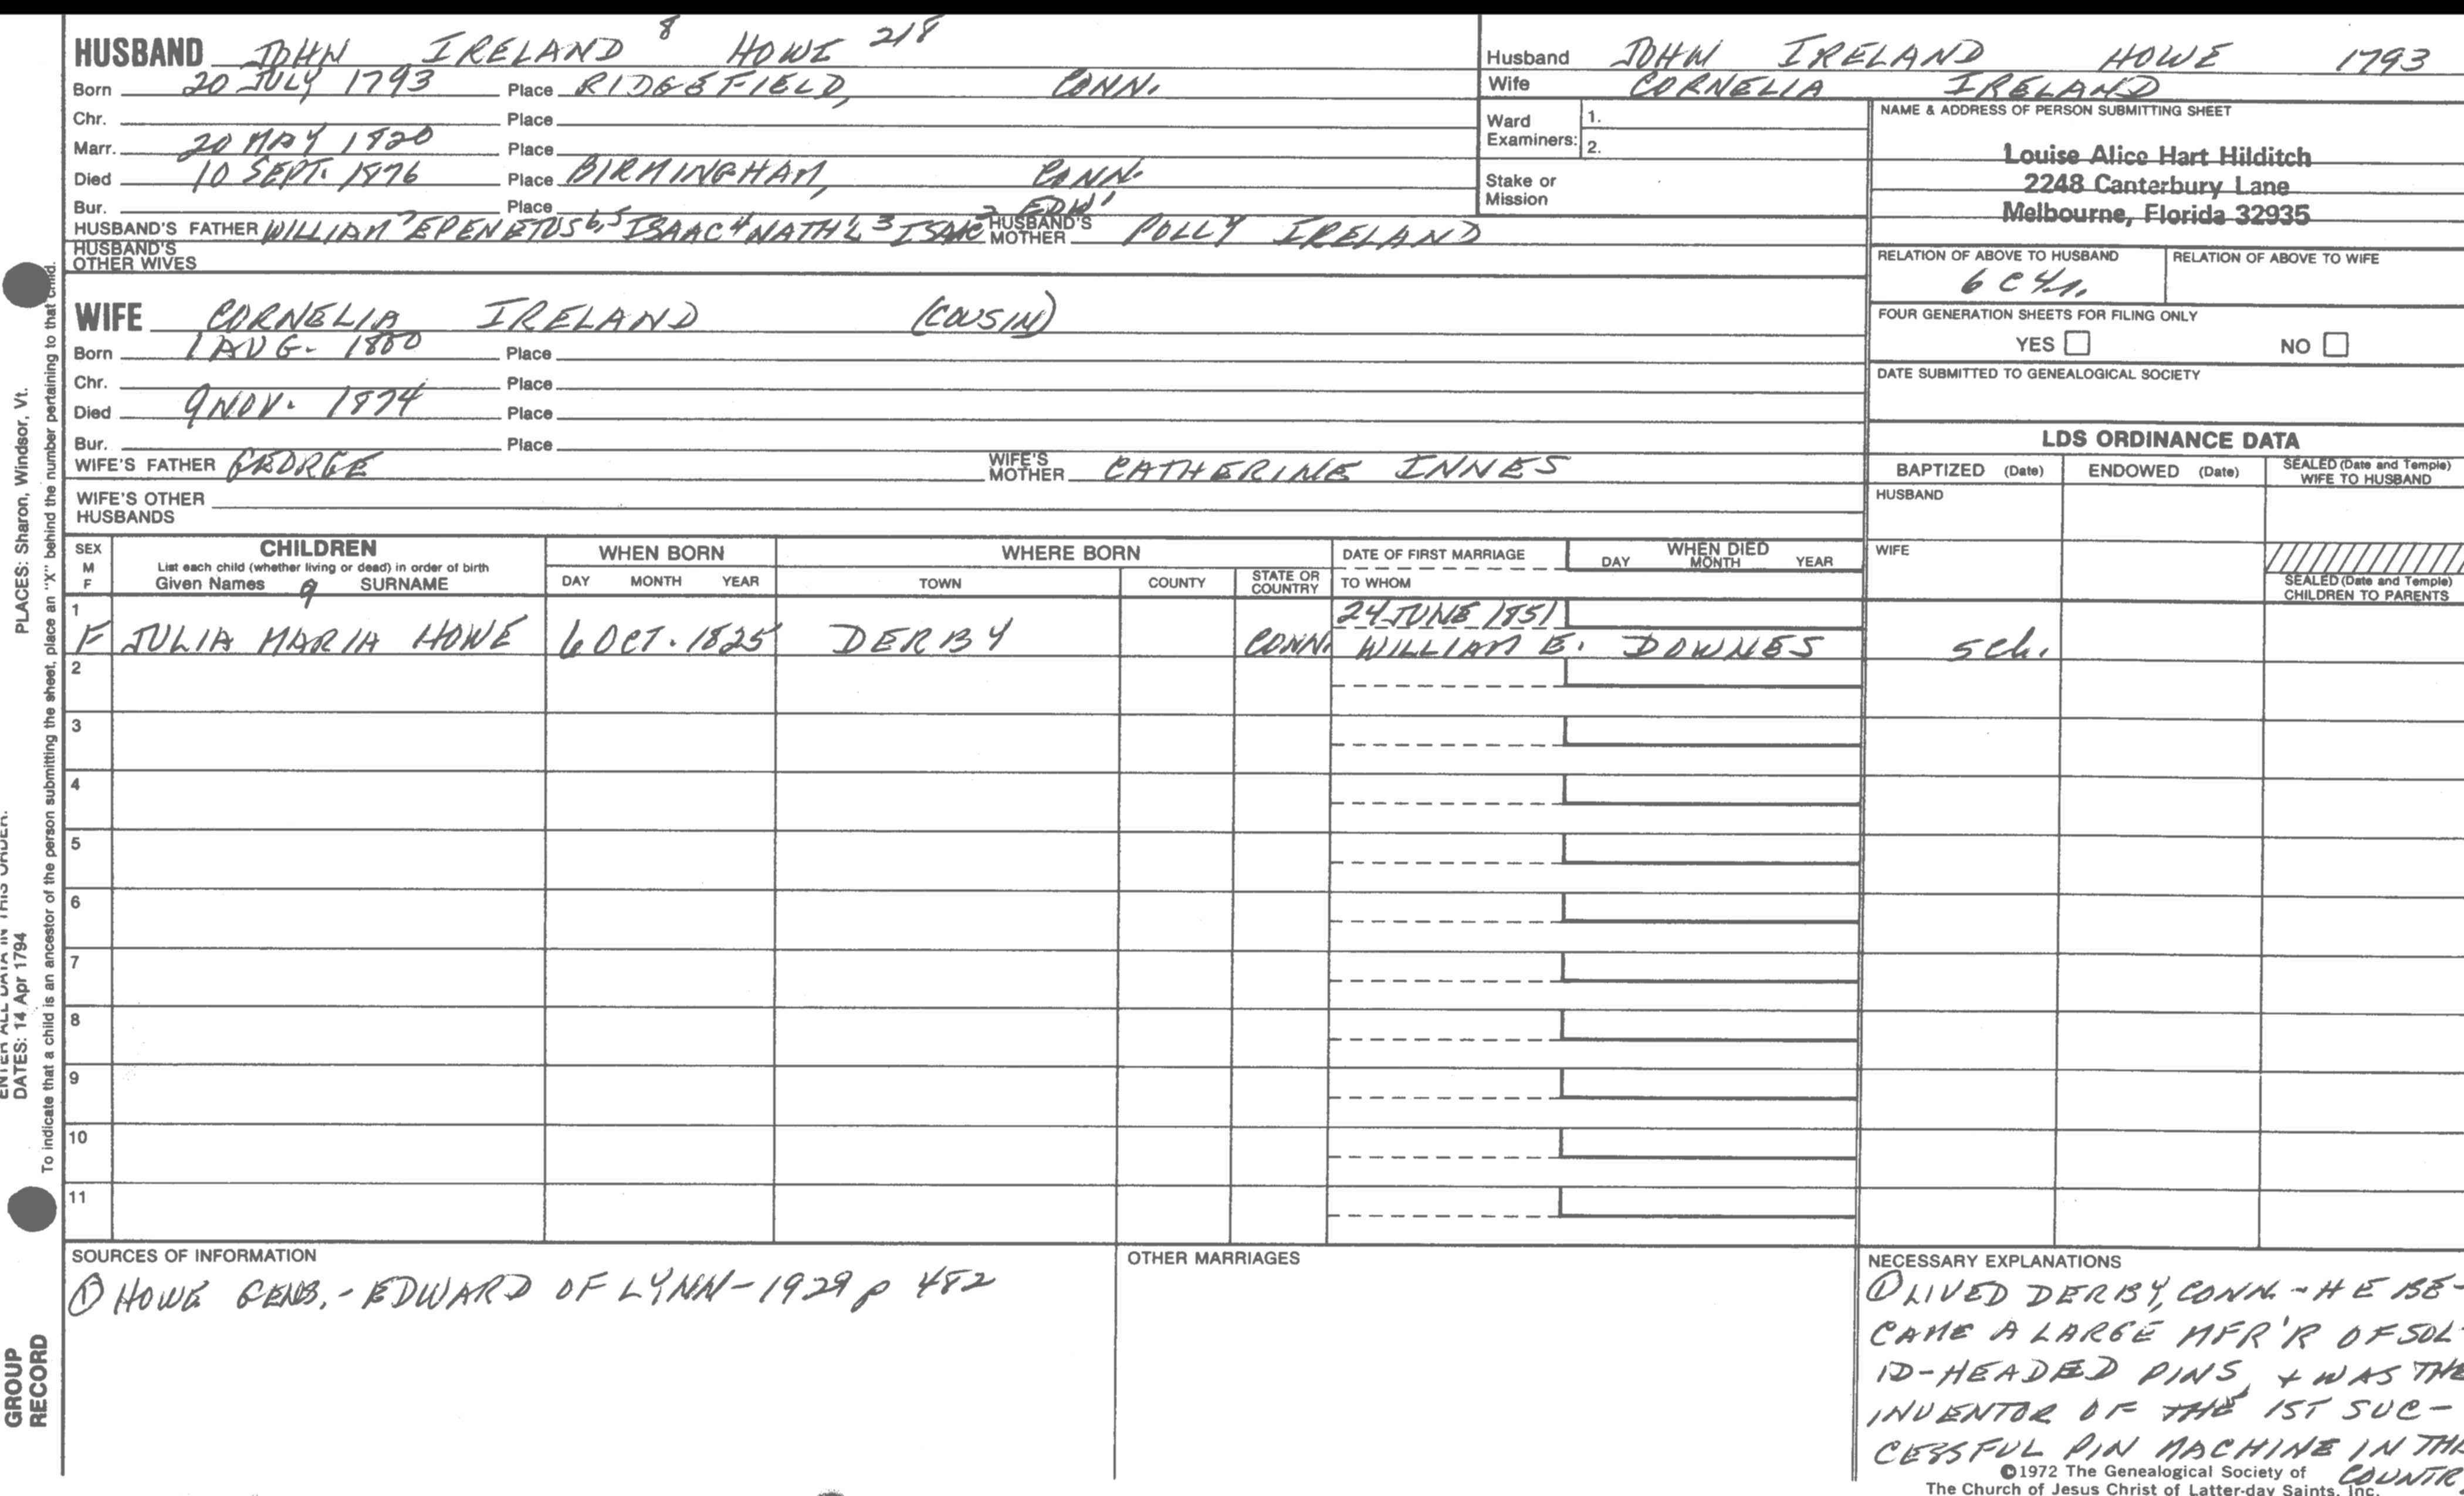 HUSBAND JOHN IRELAND 8 HOWE 218
Born 20 JULY 1793 Place RIDGEFIELD, CONN.
Chr. Place
Marr. 20 MAY 1820 Place
Died 10 SEPT. 1876 Place BIRMINGHAM, CONN.
Bur. Place
HUSBAND'S FATHER WILLIAM 7 EPENETUS 6,5 ISAAC 4 NATH'L 3 ISAAC 2 EDW' HUSBAND'S MOTHER POLLY IRELAND
HUSBAND'S OTHER WIVES
WIFE CORNELIA IRELAND (COUSIN)
Born 1 AUG. 1800 Place
Chr. Place
Died 9 NOV. 1874 Place
Bur. Place
WIFE'S FATHER GEORGE WIFE'S MOTHER CATHERINE INNES
WIFE'S OTHER HUSBANDS
Husband JOHN IRELAND HOWE 1793
Wife CORNELIA IRELAND
Ward Examiners: 1.
2.
Stake or Mission
NAME & ADDRESS OF PERSON SUBMITTING SHEET
Louise Alice Hart Hilditch
2248 Canterbury Lane
Melbourne, Florida 32935
RELATION OF ABOVE TO HUSBAND RELATION OF ABOVE TO WIFE
6 C 4 r.
FOUR GENERATION SHEETS FOR FILING ONLY
YES NO
DATE SUBMITTED TO GENEALOGICAL SOCIETY
LDS ORDINANCE DATA
BAPTIZED (Date) ENDOWED (Date) SEALED (Date and Temple) WIFE TO HUSBAND
HUSBAND
WIFE
SEALED (Date and Temple) CHILDREN TO PARENTS
SEX M F
CHILDREN
List each child (whether living or dead) in order of birth
Given Names 9 SURNAME
WHEN BORN
DAY MONTH YEAR
WHERE BORN
TOWN COUNTY STATE OR COUNTRY
DATE OF FIRST MARRIAGE
TO WHOM
WHEN DIED
DAY MONTH YEAR
1 24 JUNE 1851
F JULIA MARIA HOWE 6 OCT. 1825 DERBY CONN. WILLIAM E. DOWNES sch.
2
3
4
5
6
7
8
9
10
11
SOURCES OF INFORMATION
① HOWE GENS. - EDWARD OF LYNN - 1929 p 482
OTHER MARRIAGES
NECESSARY EXPLANATIONS
① LIVED DERBY, CONN. - HE BE-
CAME A LARGE MFR'R OF SOL-
ID-HEADED PINS, + WAS THE
INVENTOR OF THE 1ST SUC-
CESSFUL PIN MACHINE IN THE
COUNTR
©1972 The Genealogical Society of
The Church of Jesus Christ of Latter-day Saints, Inc.
PLACES: Sharon, Windsor, Vt.
ENTER ALL DATA IN THIS ORDER:
DATES: 14 Apr 1794
To indicate that a child is an ancestor of the person submitting the sheet, place an "X" behind the number pertaining to that child.
GROUP
RECORD